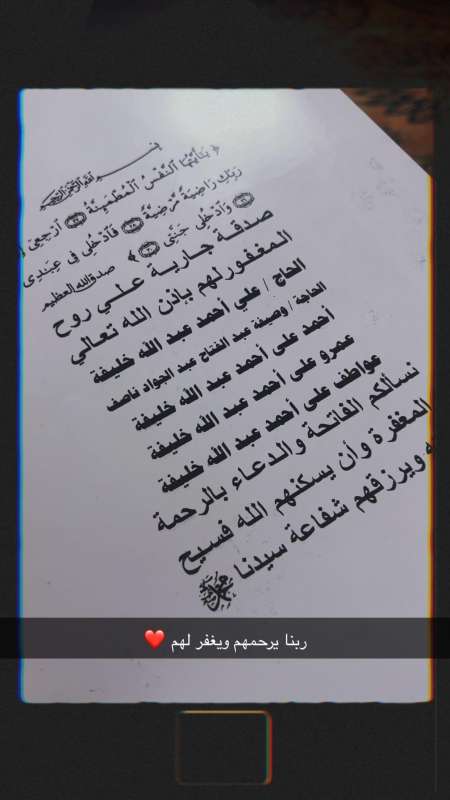 بسم الله الرحمن الرحيم
﴿ يَٰٓأَيَّتُهَا ٱلنَّفْسُ ٱلْمُطْمَئِنَّةُ ﴿٢٧﴾ ٱرْجِعِىٓ
رَبِّكِ رَاضِيَةً مَّرْضِيَّةً ﴿٢٨﴾ فَٱدْخُلِى فِى عِبَٰدِى
﴿٢٩﴾ وَٱدْخُلِى جَنَّتِى ﴿٣٠﴾ ﴾ صدق الله العظيم
صدقة جارية علي روح
المغفورلهم باذن الله تعالي
الحاج / علي أحمد عبد الله خليفة
الحاجة / وصيفة عبد الفتاح عبد الجواد ناصف
أحمد على أحمد عبد الله خليفة
عمرو على أحمد عبد الله خليفة
عواطف على أحمد عبد الله خليفة
نسألكم الفاتحة والدعاء بالرحمة
المغفرة وأن يسكنهم الله فسيح
ويرزقهم شفاعة سيدنا محمد
ربنا يرحمهم ويغفر لهم ❤️